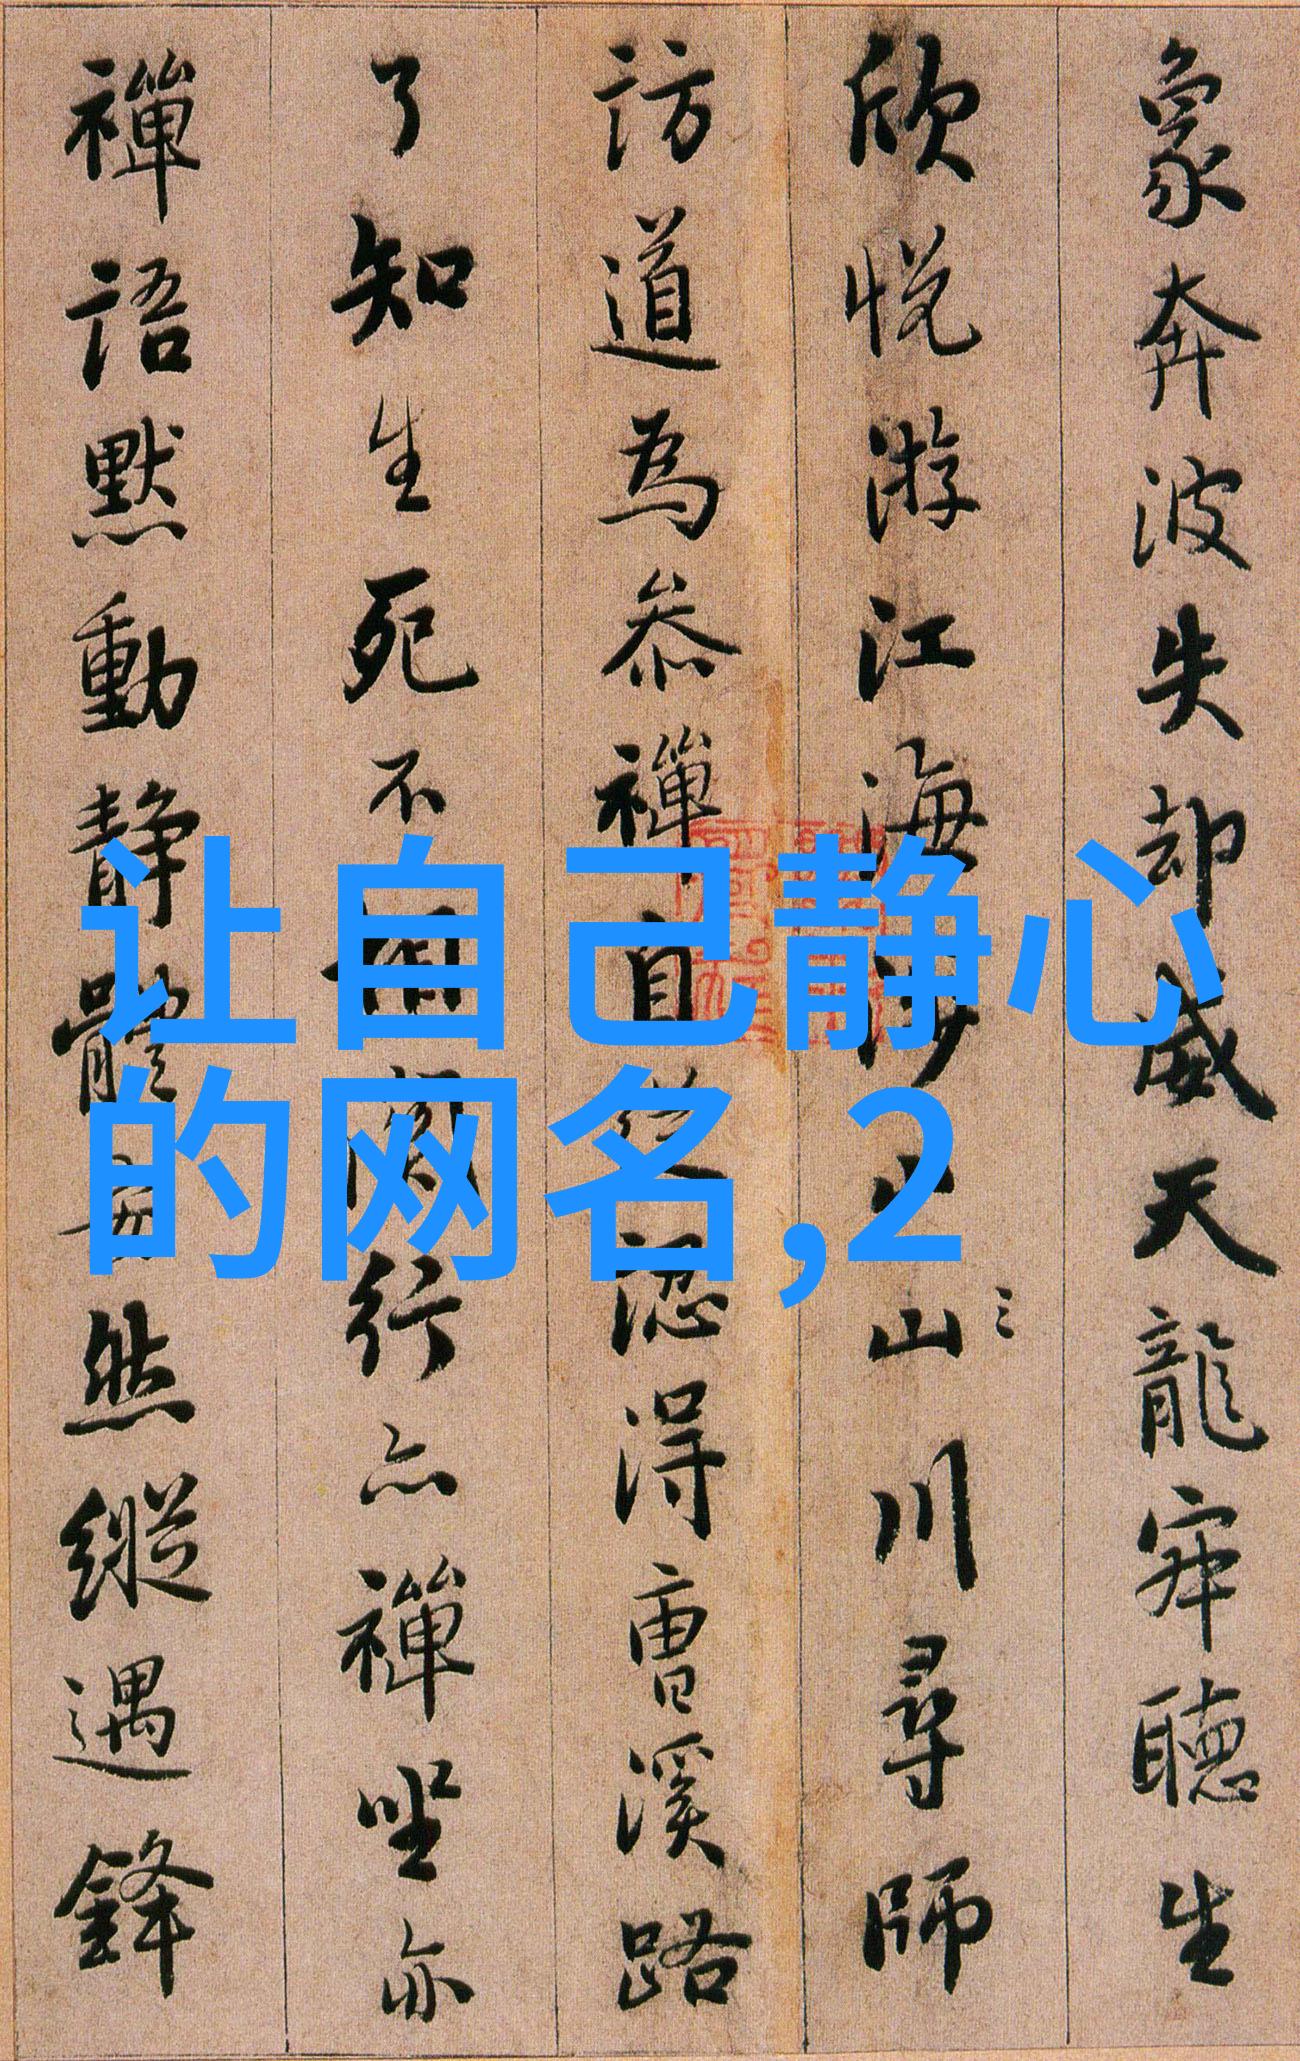 象奔波失却威天龍寂聽生
欣悦游江海涉山川尋師
訪道為叅禪自從認得曹溪路
了知生死不相關行亦禪坐亦
禪語默動静體安然縱遇鋒
让自己静心
的网名,2